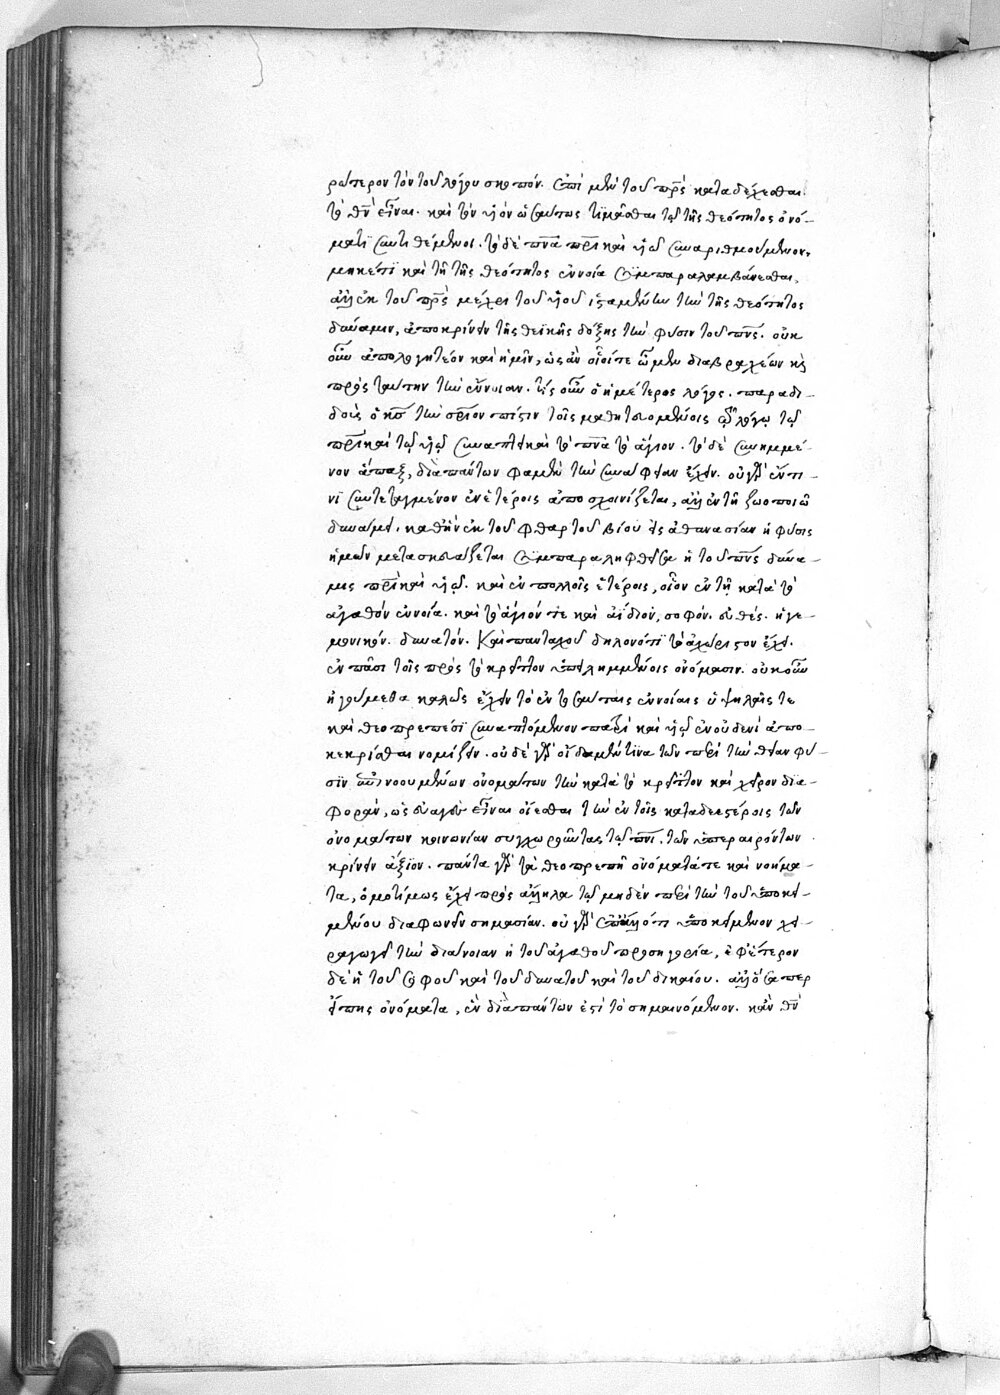 ρώτερον τὸν τοῦ λόγου σκοπόν. ἐπὶ μὲν τοῦ πρς καταδέχεσθαι
τὸ θν εἶναι. καὶ τὸν υἱὸν ὡσαύτως τιμᾶσθαι τῷ τῆς θεότητος ὀνό-
ματι συντιθέμενοι. τὸ δὲ πνα πρι καὶ υἱῷ συναριθμούμενον,
μηκέτι καὶ τῇ τῆς θεότητος ἐννοία συμπαραλαμβάνεσθαι,
ἀλλ' ἐκ τοῦ πρς μέχρι τοῦ υἱοῦ ἱσαμένων τὴν τῆς θεότητος
δύναμιν, ἀποκρίνειν τῆς θεϊκῆς δόξης τὴν φύσιν τοῦ πνς. οὐκ
οὖν ἀπολογητέον καὶ ἡμῖν, ὡς ἂν οἷοίτε ὦμεν διαβραχέων κὶ
πρὸς ταύτην τὴν ἔννοιαν. τίς οὖν ὁ ἡμέτερος λόγος. παραδι-
δοὺς ὁ κς τὴν σριον πίστιν τοῖς μαθητευομένοις τῷ λόγῳ τῷ
πρι καὶ τῷ υἱῷ συνάπτει καὶ τὸ πνα τὸ ἅγιον. τὸ δὲ συνημμέ-
νον ἅπαξ, διαπάντων φαμὲν τὴν συνάφειαν ἔχειν. οὐ γὰρ ἔν τι-
νι συντεταγμένον ἐν ἑτέροις ἀποσχοινίζεται, ἀλλ' ἐν τῇ ζωοποιῶ
δυνάμει. καθ' ἣν ἐκ τοῦ φθαρτοῦ βίου εἰς ἀθανασίαν ἡ φύσις
ἡμῶν μετασκευάζεται συμπαραληφθεῖσα ἡ τοῦ πνς δύνα-
μις πρι καὶ υἱῷ. καὶ ἐν πολλοῖς ἑτέροις, οἷον ἐν τῇ κατὰ τὸ
ἀγαθὸν ἐννοία. καὶ τὸ ἅγιόν τε καὶ ἀΐδιον, σοφόν. εὐθές. ἡγε-
μονικόν. δυνατόν. καὶ πανταχοῦ δηλονότι τὸ ἀχώριστον ἔχει.
ἐν πᾶσι τοῖς πρὸς τὸ κρεῖττον ὑπειλημμένοις ὀνόμασιν. οὐκοῦν
ἡγούμεθα καλῶς ἔχειν τὸ ἐν ταύταις ἐννοίαις ὑψηλαῖς τε
καὶ θεοπρεπέσι συναπτόμενον πατρὶ καὶ υἱῷ ἐν οὐδενὶ ἀπο-
κεκρίσθαι νομίζειν. οὐδὲ γὰρ οἴδαμέν τινα τῶν περὶ τὴν θείαν φύ-
σιν ἐπινοουμένων ὀνομάτων τὴν κατὰ τὸ κρεῖττον καὶ χεῖρον δια-
φοράν, ὡς εὐαγὲς εἶναι οἴεσθαι τὴν ἐν τοῖς καταδεεστέροις τῶν
ὀνομάτων κοινωνίαν συγχωροῦντας τῷ πνι, τῶν ὑπεραιρόντων
κρίνειν ἄξιον. πάντα γὰρ τὰ θεοπρεπῆ ὀνόματά τε καὶ νοήμα-
τα, ὁμοτίμως ἔχει πρὸς ἄλληλα τῷ μηδὲν περὶ τὴν τοῦ ὑποκει-
μένου διαφωνεῖν σημασίαν. οὐ γὰρ ἐπ' ἄλλό τι ὑποκείμενον χει-
ραγωγεῖ τὴν διάνοιαν ἡ τοῦ ἀγαθοῦ προσηγορία, ἐφ' ἕτερον
δὲ ἡ τοῦ σοφοῦ καὶ τοῦ δυνατοῦ καὶ τοῦ δικαίου. ἀλλ' ὅσαπερ
εἴπης ὀνόματα, ἓν διαπάντων ἐστὶ τὸ σημαινόμενον. κἂν θν